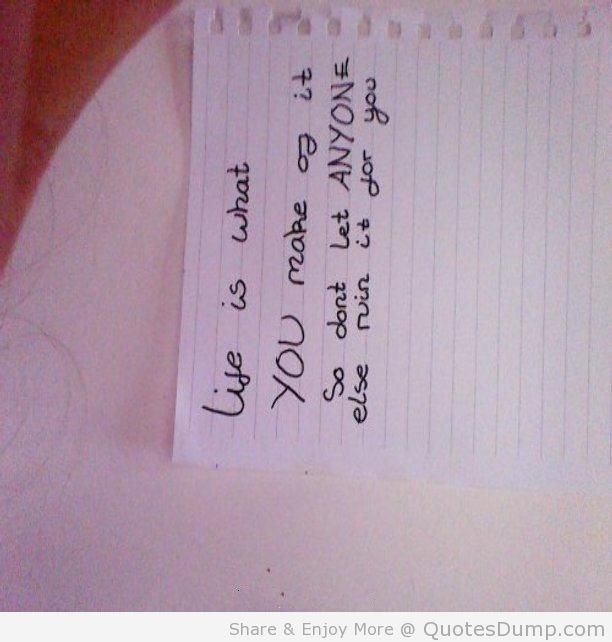 Life is what
YOU make of it
So dont let ANYONE
else ruin it for you
Share & Enjoy More @ QuotesDump.com